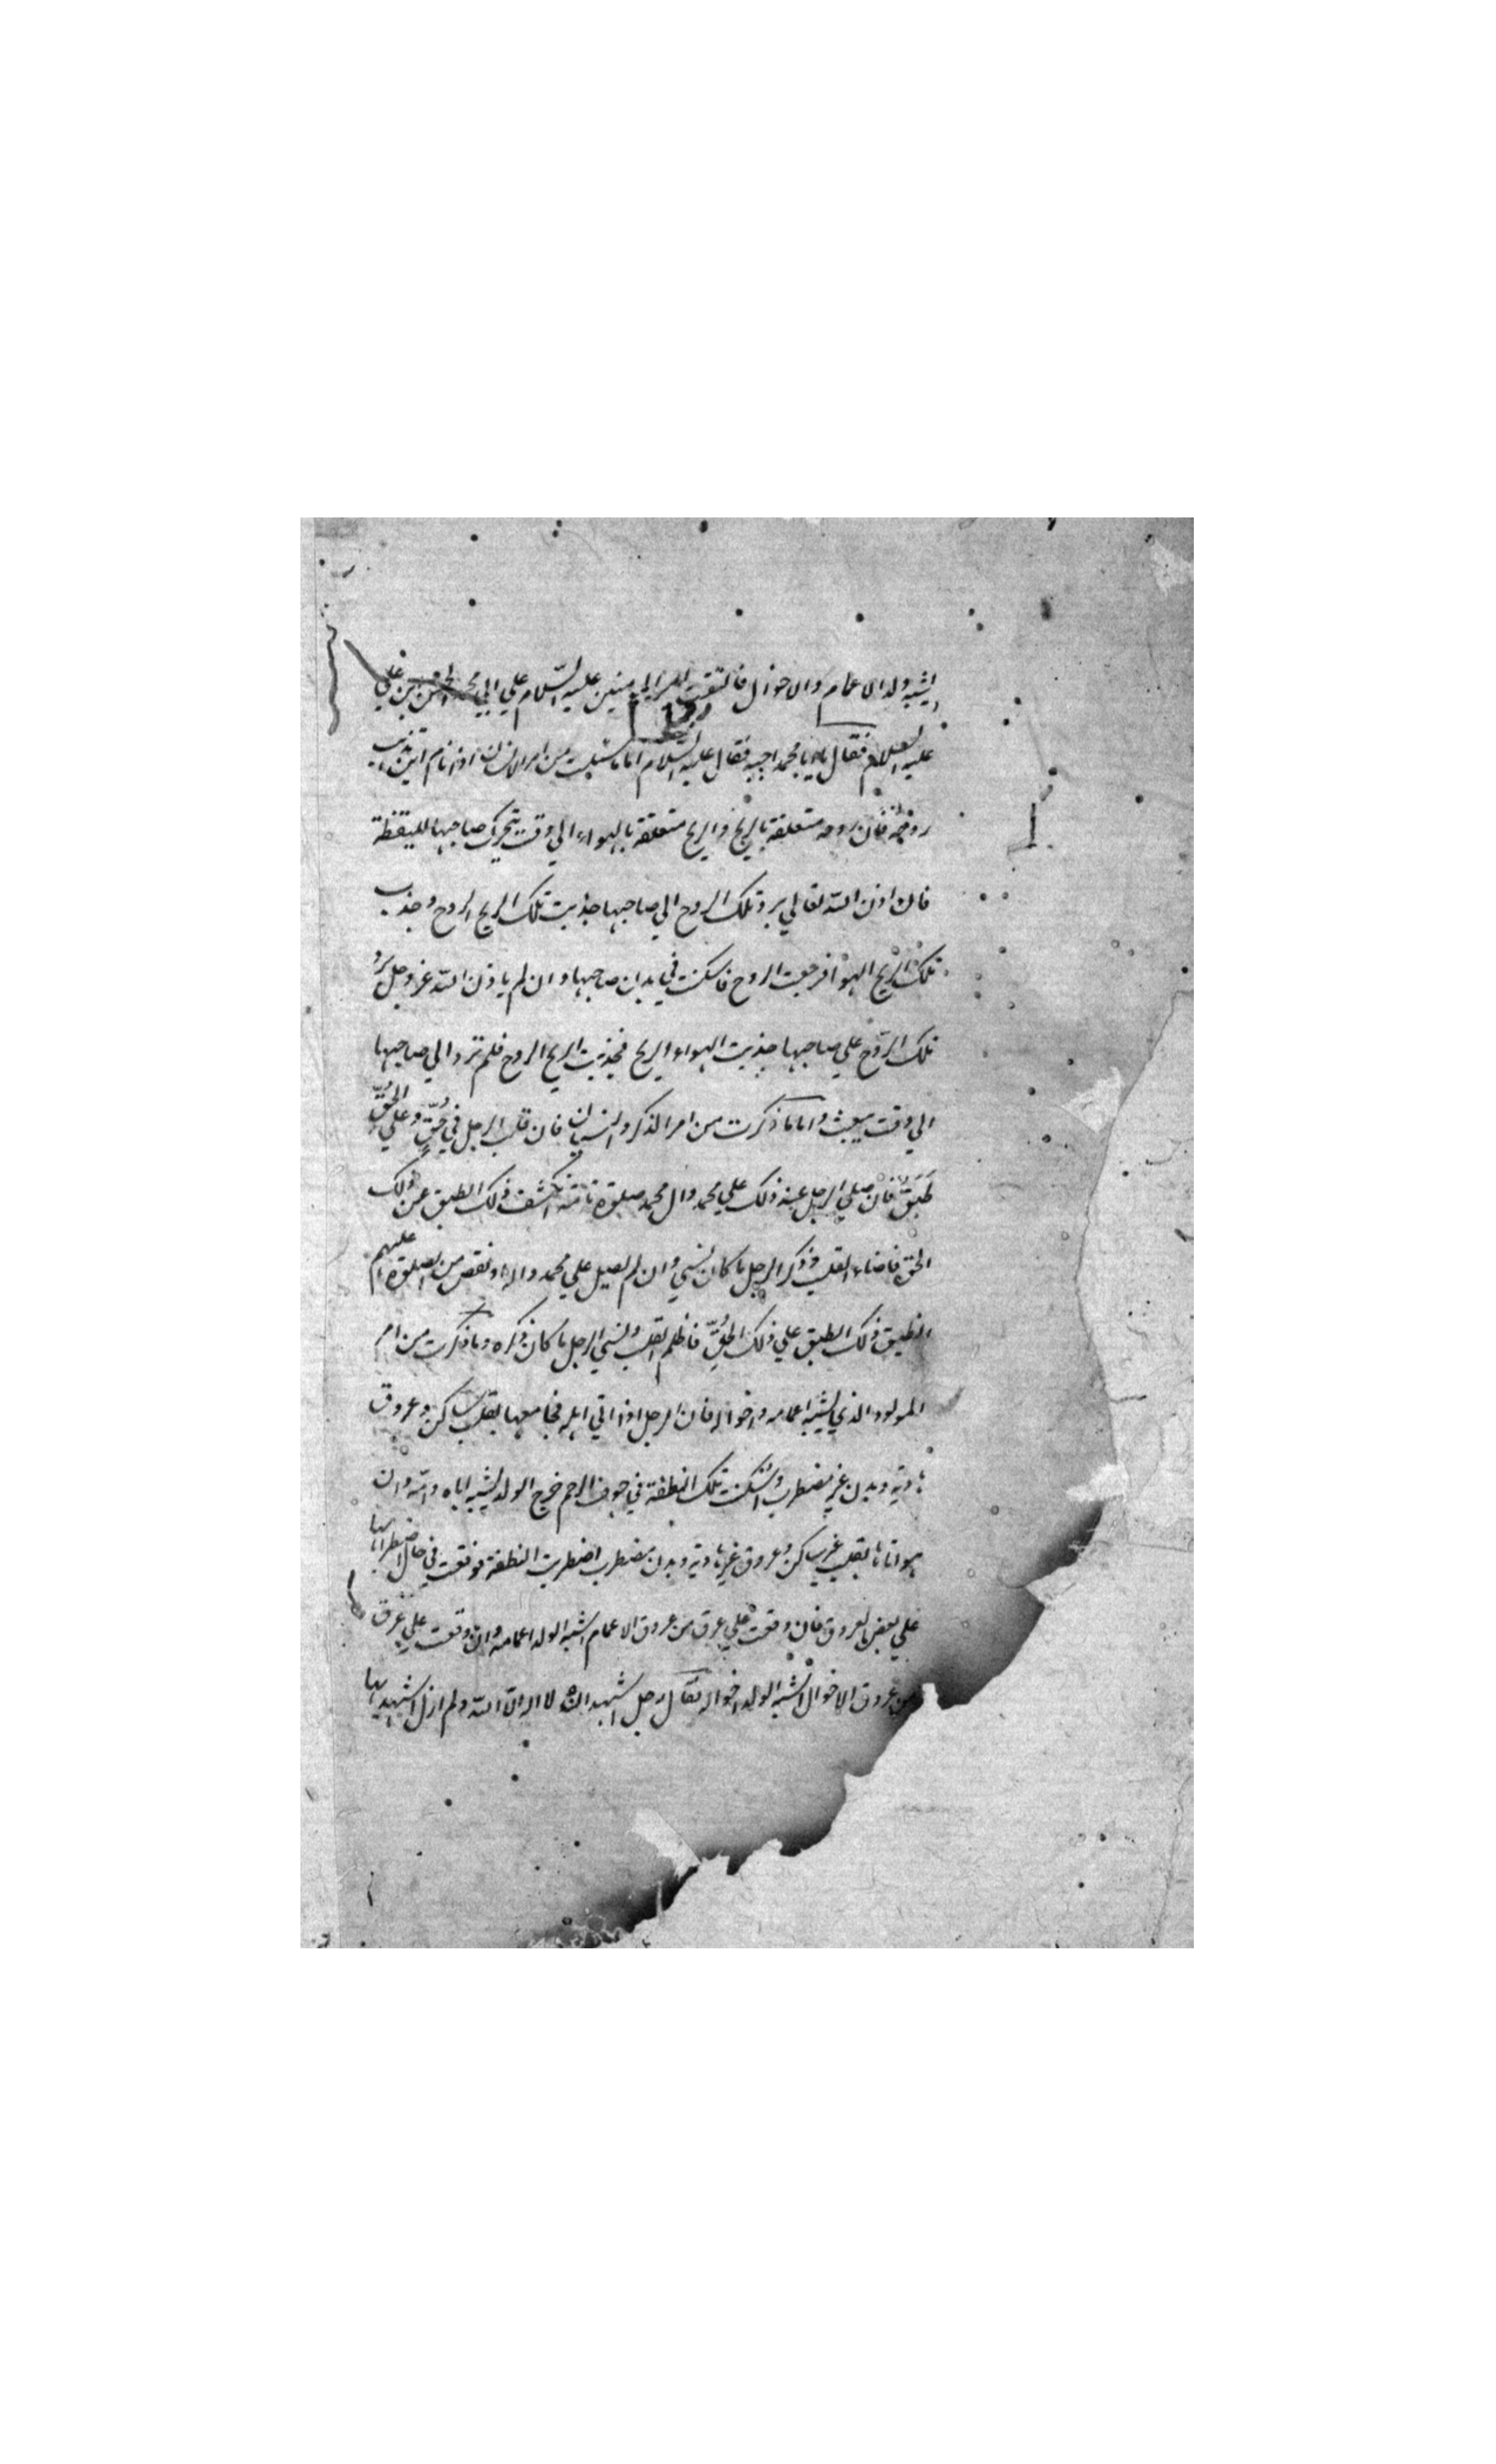 يشبه ولده الاعمام والاخوال فالتفت امير المومنين عليه السّلام علي ابي محمد الحسن بن علي
عليه السلام فقال يا با محمد اجبه فقال عليه السلام اما ما سئلت من امر الانسان اذا نام اين تذهب
روحه فان روحه متعلقة بالريح والريح متعلقة بالهواء الي وقت يتحرك صاحبها لليقظة
فان اذن الله تعالي برد تلك الروح الي صاحبها جذبت تلك الريح الروح وجذب
تلك الريح الهوا فرجعت الروح فاسكنت في بدن صاحبها وان لم ياذن الله عز وجل برد
تلك الرّوح علي صاحبها جذبت الهواء الريح فجذبت الريح الروح فلم ترد الي صاحبها
الي وقت يبعث واما ما ذكرت من امر الذكر والنسيان فان قلب الرجل في حُقٍّ وعلي الحُقِّ
طَبَقٌ فان صلي الرجل عند ذلك علي محمد وال محمد صلوة تامّة انكشف ذلك الطبق عن ذلك
الحق فاضاء القلب وذكر الرجل ما كان نسي وان لم يصل علي محمد واله او نقص من الصلوة عليهم
انطبق ذلك الطبق علي ذلك الحُقِّ فاظلم القلب ونسي الرجل ما كان ذكره وما ذكرت من امر
المولود الذي يشبه اعمامه واخواله فان الرجل اذا اتي اهله فجامعها بقلب ساكن وعروق
هادية وبدن غير مضطرب واسكنت تلك النطفة في جوف الرحم خرج الولد يشبه اباه وامّه وان
هو اتاها بقلب غير ساكن وعروق غير هادية وبدن مضطرب اضطربت النطفة فوقعت في حال اضطرابها
علي بعض العروق فان وقعت علي عرق من عروق الاعمام اشبه الولد اعمامه وان وقعت علي عرق
من عروق الاخوال اشبه الولد اخواله فقال رجل اشهد ان لا اله الّا الله ولم ازل اشهد بها